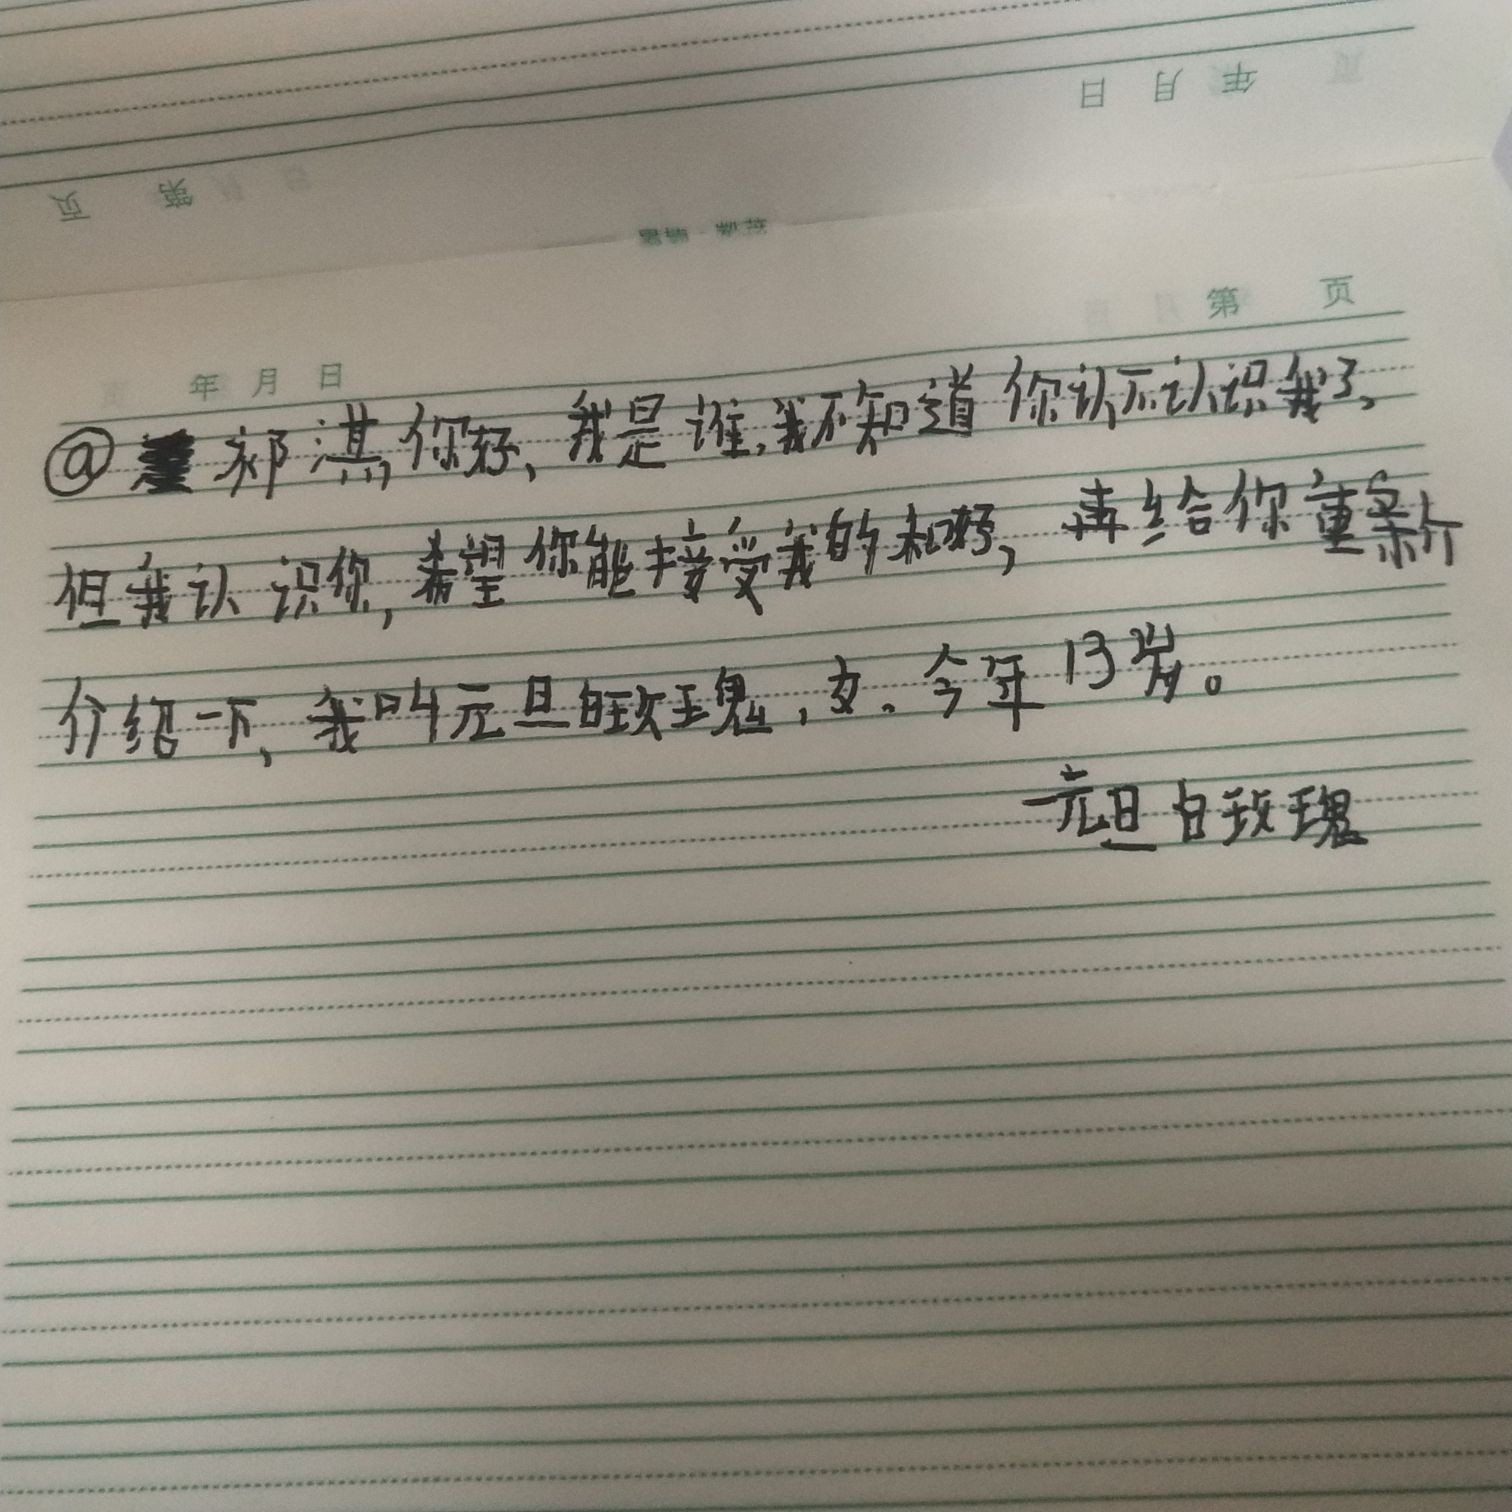 日 月 年 页
页 第
第 页
年 月 日
@ 祁淇,你好、我是谁,我不知道你认不认识我了、
但我认识你,希望你能接受我的和好,再给你重新
介绍一下,我叫元旦白玫瑰,女.今年13岁。
元旦白玫瑰